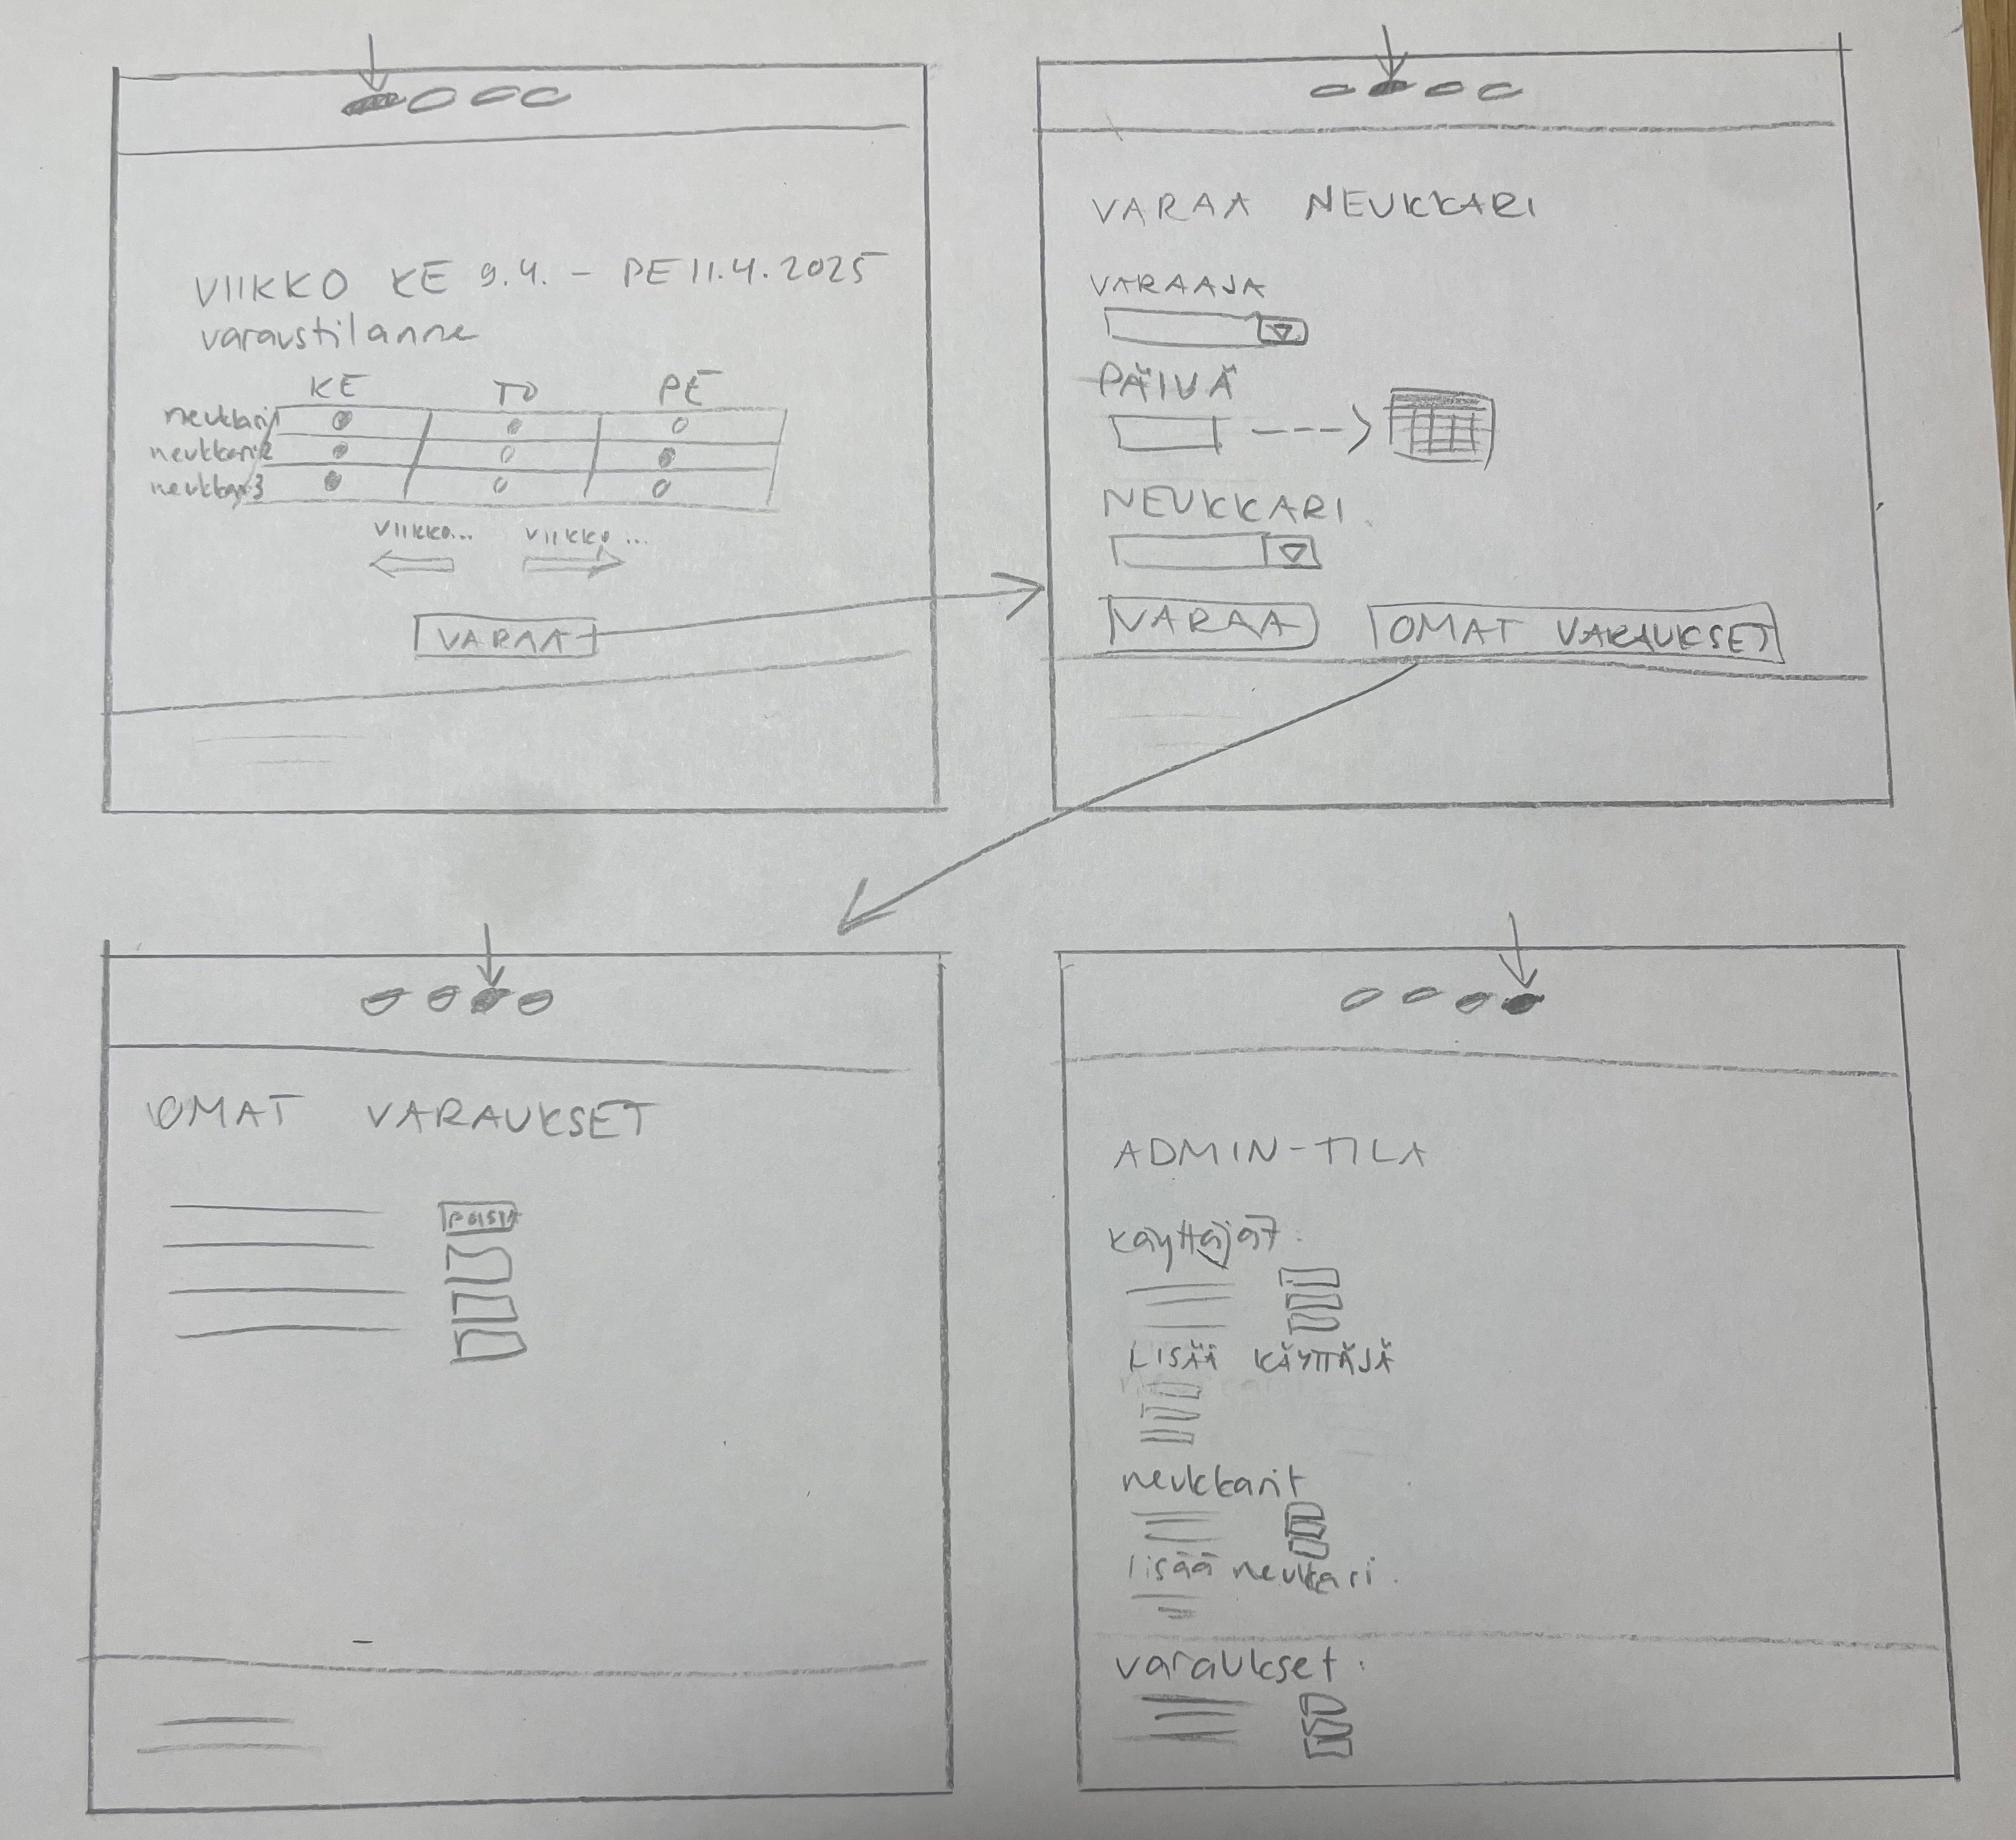 VIIKKO KE 9.4. – PE 11.4.2025
varaustilanne
KE TO PE
neukkari1
neukkari2
neukkari3
VIIKKO... VIIKKO...
VARAA
VARAA NEUKKARI
VARAAJA
PÄIVÄ
NEUKKARI
VARAA OMAT VARAUKSET
OMAT VARAUKSET
POISTA
ADMIN-TILA
käyttäjät
LISÄÄ KÄYTTÄJÄ
neukkarit
lisää neukkari
varaukset